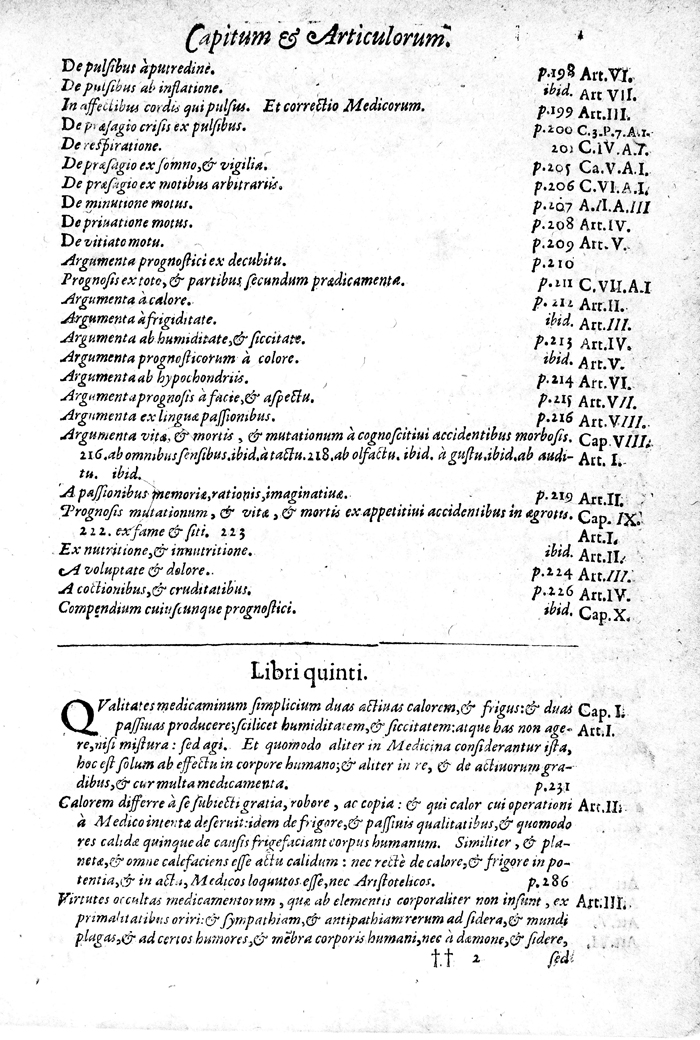 Capitum & Articulorum.
De pulsibus à putredine. p.198 Art.VI.
De pulsibus ab inflatione. ibid. Art VII.
In affectibus cordis qui pulsus. Et correctio Medicorum. p.199 Art.III.
De præsagio crisis ex pulsibus. p.200 C.3.P.7.A.I.
De respiratione. 201 C.IV.A.I.
De præsagio ex somno,& vigilia. p.205 Ca.V.A.I.
De præsagio ex motibus arbitrariis. p.206 C.VI.A.I.
De minutione motus. p.207 A.II.A.III
De priuatione motus. p.208 Art.IV.
De vitiato motu. p.209 Art.V.
Argumenta prognostici ex decubitu. p.210
Prognosis ex toto,& partibus secundum prædicamenta. p.211 C.VII.A.I
Argumenta à calore. p.212 Art.II.
Argumenta à frigiditate. ibid. Art.III.
Argumenta ab humiditate,& siccitate. p.213 Art.IV.
Argumenta prognosticorum à colore. ibid. Art.V.
Argumenta ab hypochondriis. p.214 Art.VI.
Argumenta prognosis à facie,& aspectu. p.215 Art.VII.
Argumenta ex linguæ passionibus. p.216 Art.VIII.
Argumenta vitæ, & mortis, & mutationum à cognoscitiui accidentibus morbosis. Cap.VIII.
216.ab omnibus sensibus.ibid.à tactu.218.ab olfactu. ibid. à gustu.ibid.ab audi- Art. I.
tu. ibid.
A passionibus memoriæ,rationis,imaginatiuæ. p.219 Art.II.
Prognosis mutationum, & vitæ, & mortis ex appetitiui accidentibus in ægrotis. Cap. IX.
222. ex fame & siti. 223 Art.I.
Ex nutritione,& innutritione. ibid. Art.II.
A voluptate & dolore. p.224 Art.III.
A coctionibus,& cruditatibus. p.226 Art.IV.
Compendium cuiuscunque prognostici. ibid. Cap.X.
Libri quinti.
QValitates medicaminum simplicium duas actiuas calorem,& frigus:& duas Cap. I.
passiuas producere;scilicet humiditatem,& siccitatem:atque has non age- Art.I.
re,nisi mistura: sed agi. Et quomodo aliter in Medicina considerantur ista,
hoc est solum ab effectu in corpore humano;& aliter in re, & de actiuorum gra-
dibus,& cur multa medicamenta. p.231
Calorem differre à se subiecti gratia, robore, ac copia: & qui calor cui operationi Art.II.
à Medico intentæ deseruit:idem de frigore,& passiuis qualitatibus,& quomodo
res calidæ quinque de causis frigefaciant corpus humanum. Similiter, & pla-
netæ,& omne calefaciens esse actu calidum: nec rectè de calore,& frigore in po-
tentia,& in actu, Medicos loquutos esse, nec Aristotelicos. p.286
Virtutes occultas medicamentorum, quæ ab elementis corporaliter non insunt, ex Art.III.
primalitatibus oriri:& sympathiam,& antipathiam rerum ad sidera,& mundi
plagas,& ad certos humores,& mẽbra corporis humani,nec à dæmone,& sidere,
†† 2 sed